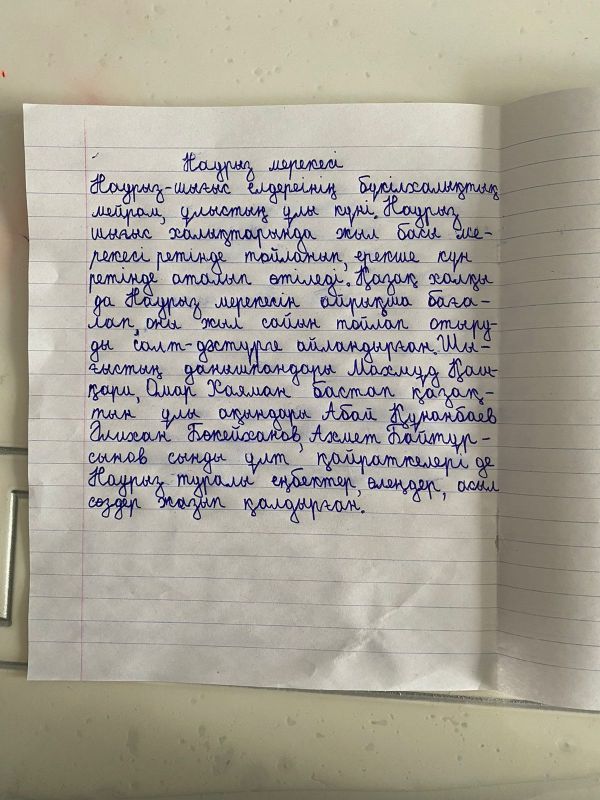 Наурыз мерекесі
Наурыз-шығыс елдереінің бүкілхалықтық
мейрам, ұлыстың ұлы күні. Наурыз
шығыс халықтарында жыл басы ме-
рекесі ретінде тойланып, ерекше күн
ретінде аталып өтіледі. Қазақ халқы
да Наурыз мерекесін айрықша баға-
лап, оны жыл сайын тойлап отыру-
ды салт-дәстүрге айландырған. Шы-
ғыстың данышпандары Махмұд Қаш-
қари, Омар Хаяман бастап қазақ-
тын ұлы ақындары Абай Құнанбаев
Әлихан Бөкейханов, Ахмет Байтұр-
сынов сынды ұлт қайраткелері де
Наурыз туралы еңбектер, өлеңдер, асыл
сөздер жазып қалдырған.